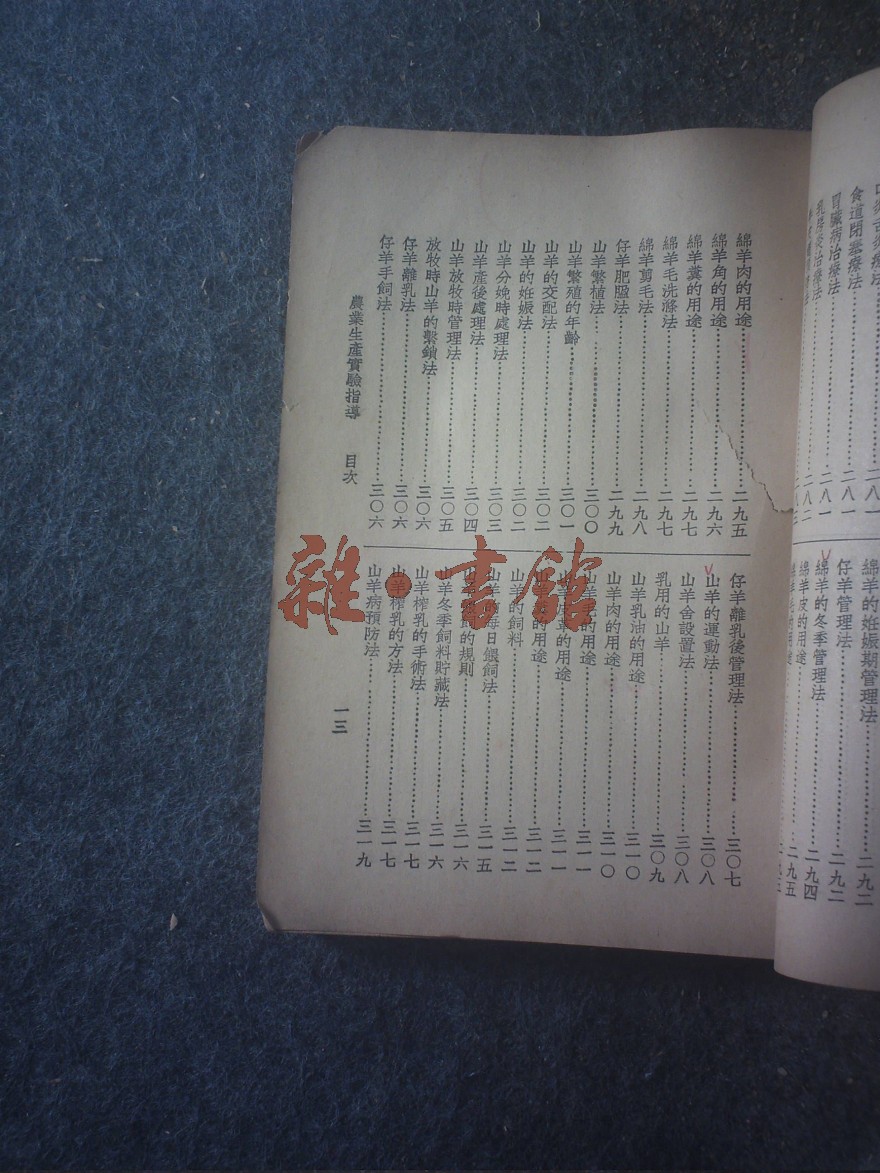 食道閉塞療法……二八一
胃臟病治療法……二八一
綿羊的妊娠期管理法……二九二
仔羊管理法……二九二
綿羊的冬季管理法……二九四
綿羊皮的用途……二九五
綿羊肉的用途……二九五
綿羊角的用途……二九六
綿羊糞的用途……二九七
綿羊毛洗滌法……二九七
綿羊剪毛法……二九八
仔羊肥腯法……二九九
山羊繁植法……三〇〇
山羊繁殖的年齡……三〇一
山羊的交配法……三〇二
山羊的妊娠法……三〇二
山羊分娩時處理法……三〇三
山羊產後處理法……三〇四
山羊放牧時管理法……三〇五
放牧時山羊的繫鎖法……三〇六
仔羊離乳法……三〇六
仔羊手飼法……三〇六
仔羊離乳後管理法……三〇七
山羊的運動法……三〇八
山羊舍設置法……三〇八
乳用的山羊……三〇九
山羊乳油的用途……三一〇
山羊肉的用途……三一〇
山羊的用途……三一一
的用途……三一一
的用途……三一二
山羊的飼料……三一二
山羊的每日餵飼法……三一五
的規則……三一六
山羊冬季飼料貯藏法……三一六
山羊榨乳的手術法……三一七
山羊榨乳的方法……三一七
山羊病預防法……三一九
農業生產實驗指導 目次
一三
雜·書館